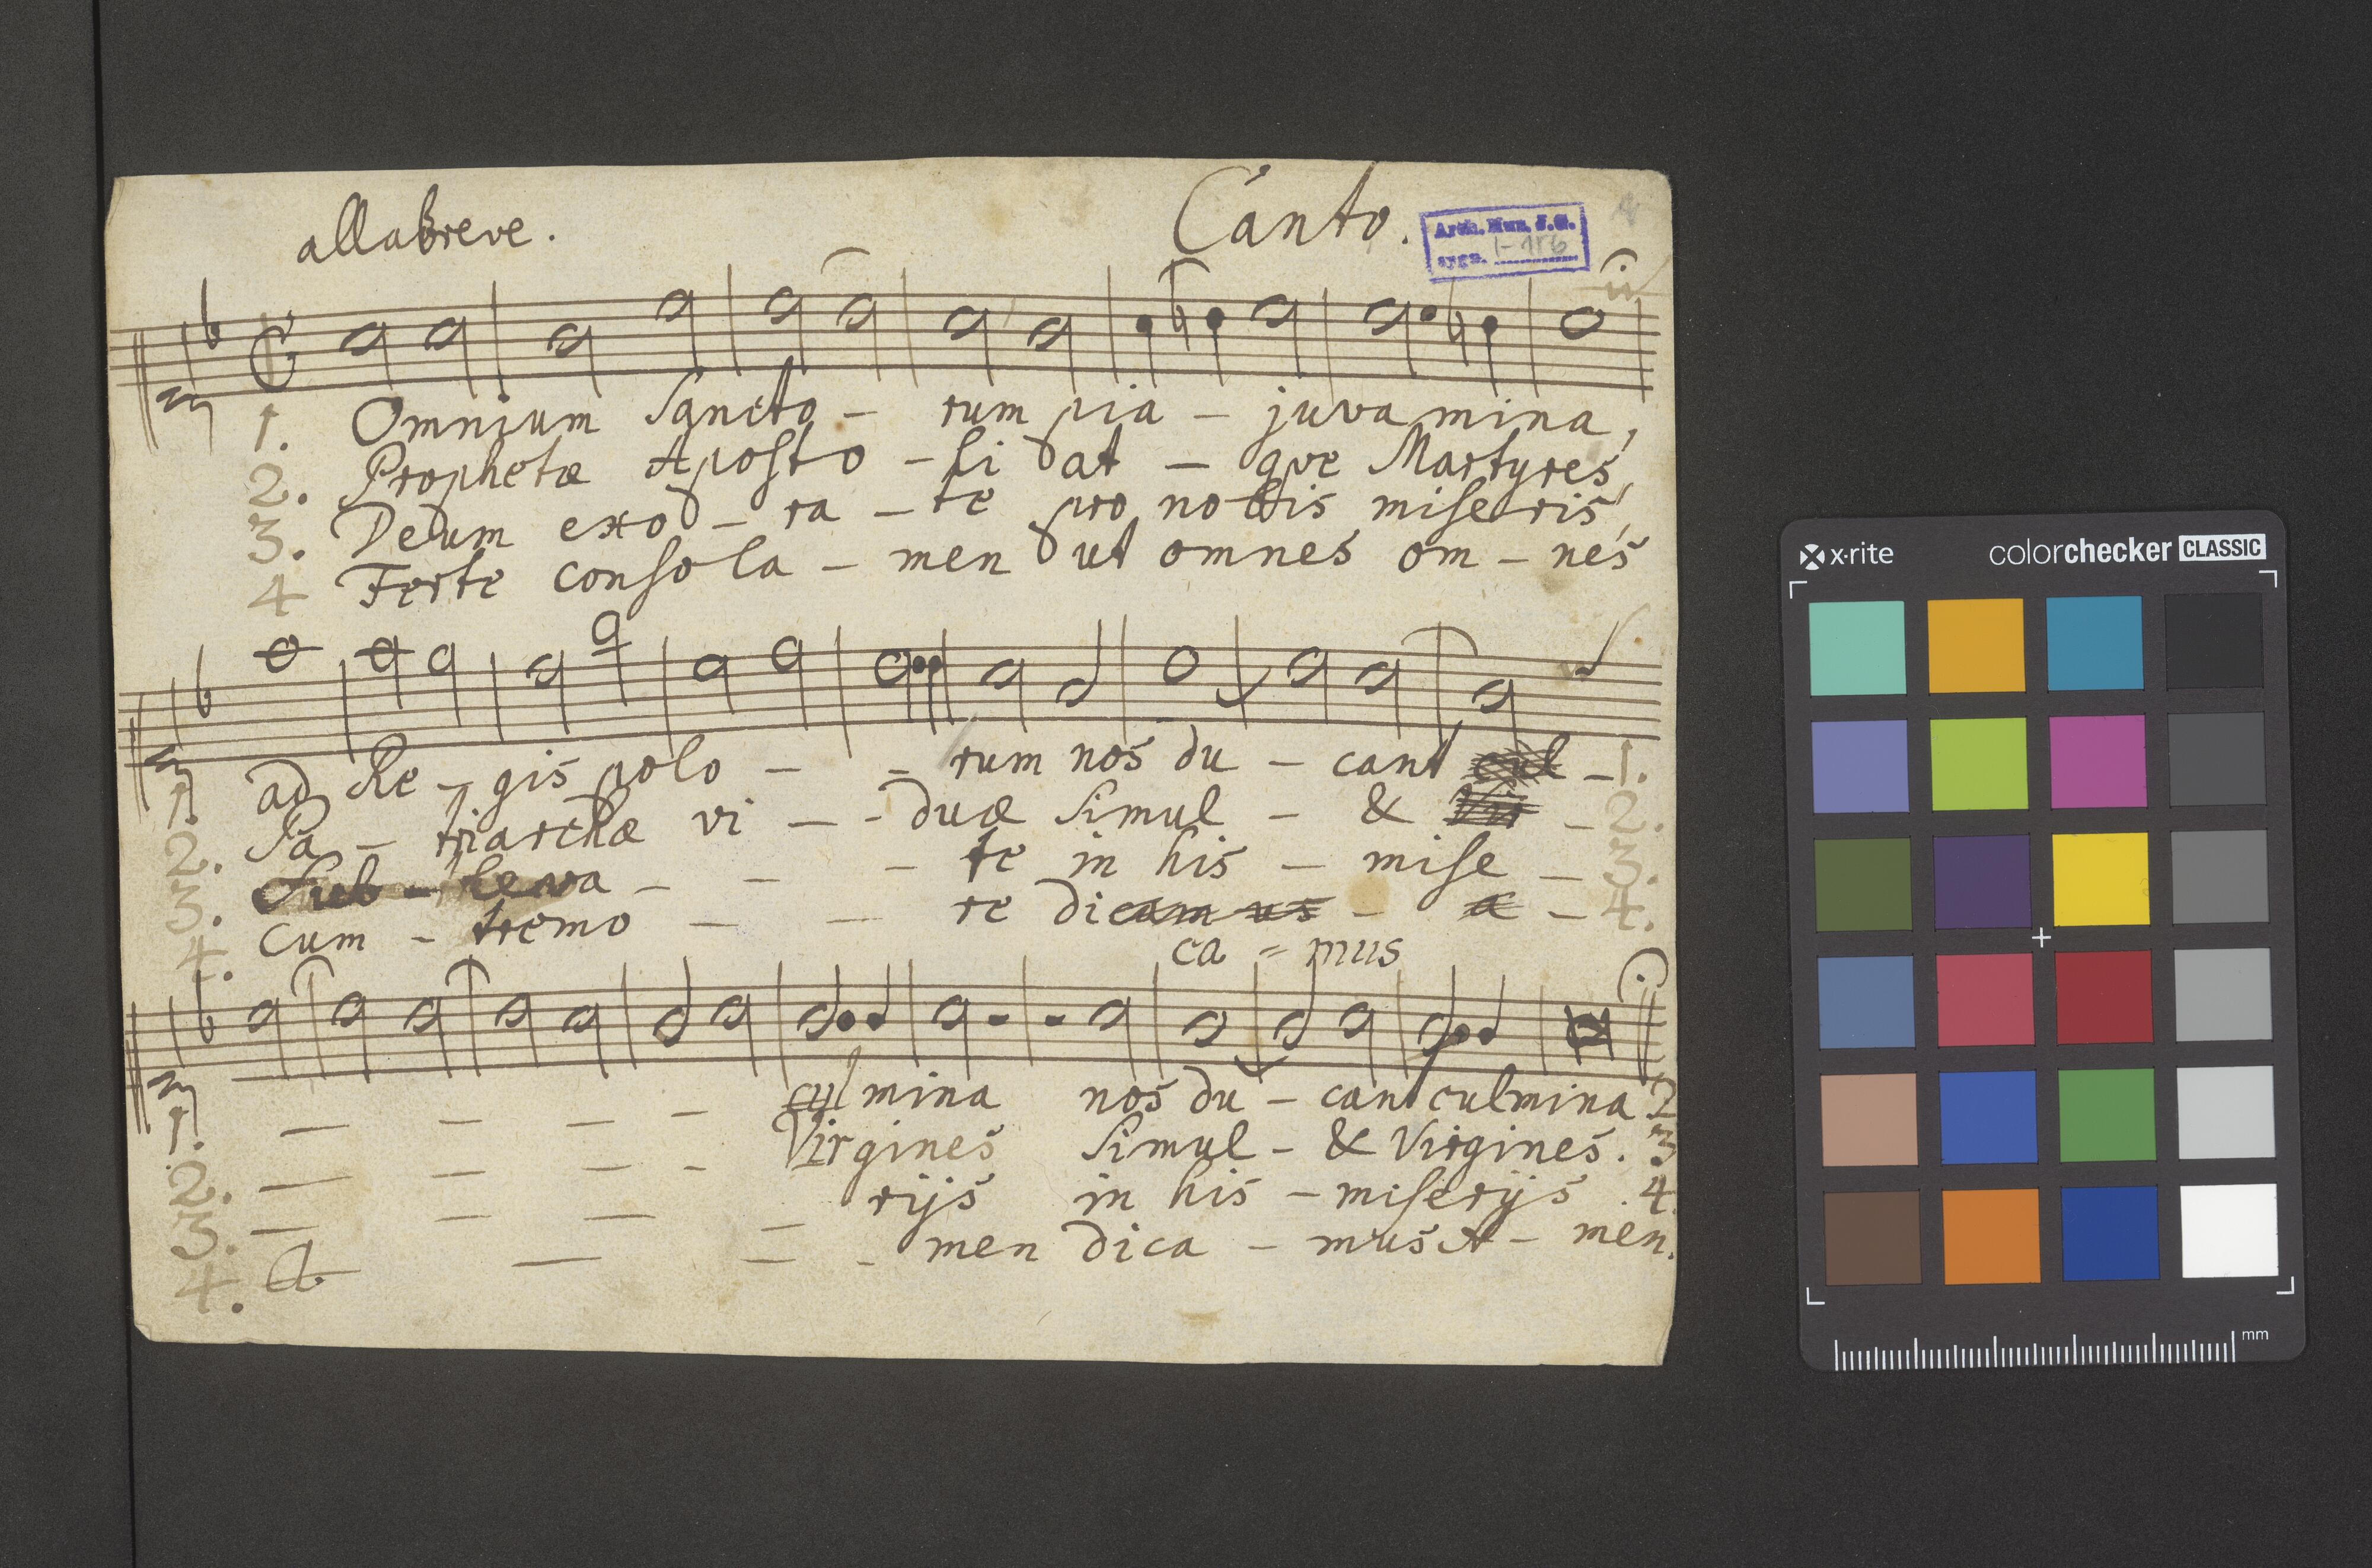 allabreve. Canto.
Arch. Mus. J.G.
sygn. I-156
1. Omnium Sancto - rum pia - juvamina,
2. Prophetæ Aposto - li at - que Martyres,
3. Deum exo - ra - te pro nobis miseris,
4 Ferte consola - men ut omnes om - nes
1. ad Re - gis polo - - rum nos du - cant cul - 1.
2. Pa - triarchæ vi - - duæ simul - & Vir - 2.
3. Sub - leva - - - te in his - mise - 3.
4. cum - tremo - - re dicamus - a - 4.
ca = mus
1. - - - - culmina nos du - cant culmina 2
2. - - - - Virgines simul - & Virgines. 3
3. - - - - rijs in his - miserijs . 4.
4. A - - - men dica - mus A - men.
x·rite colorchecker CLASSIC
mm